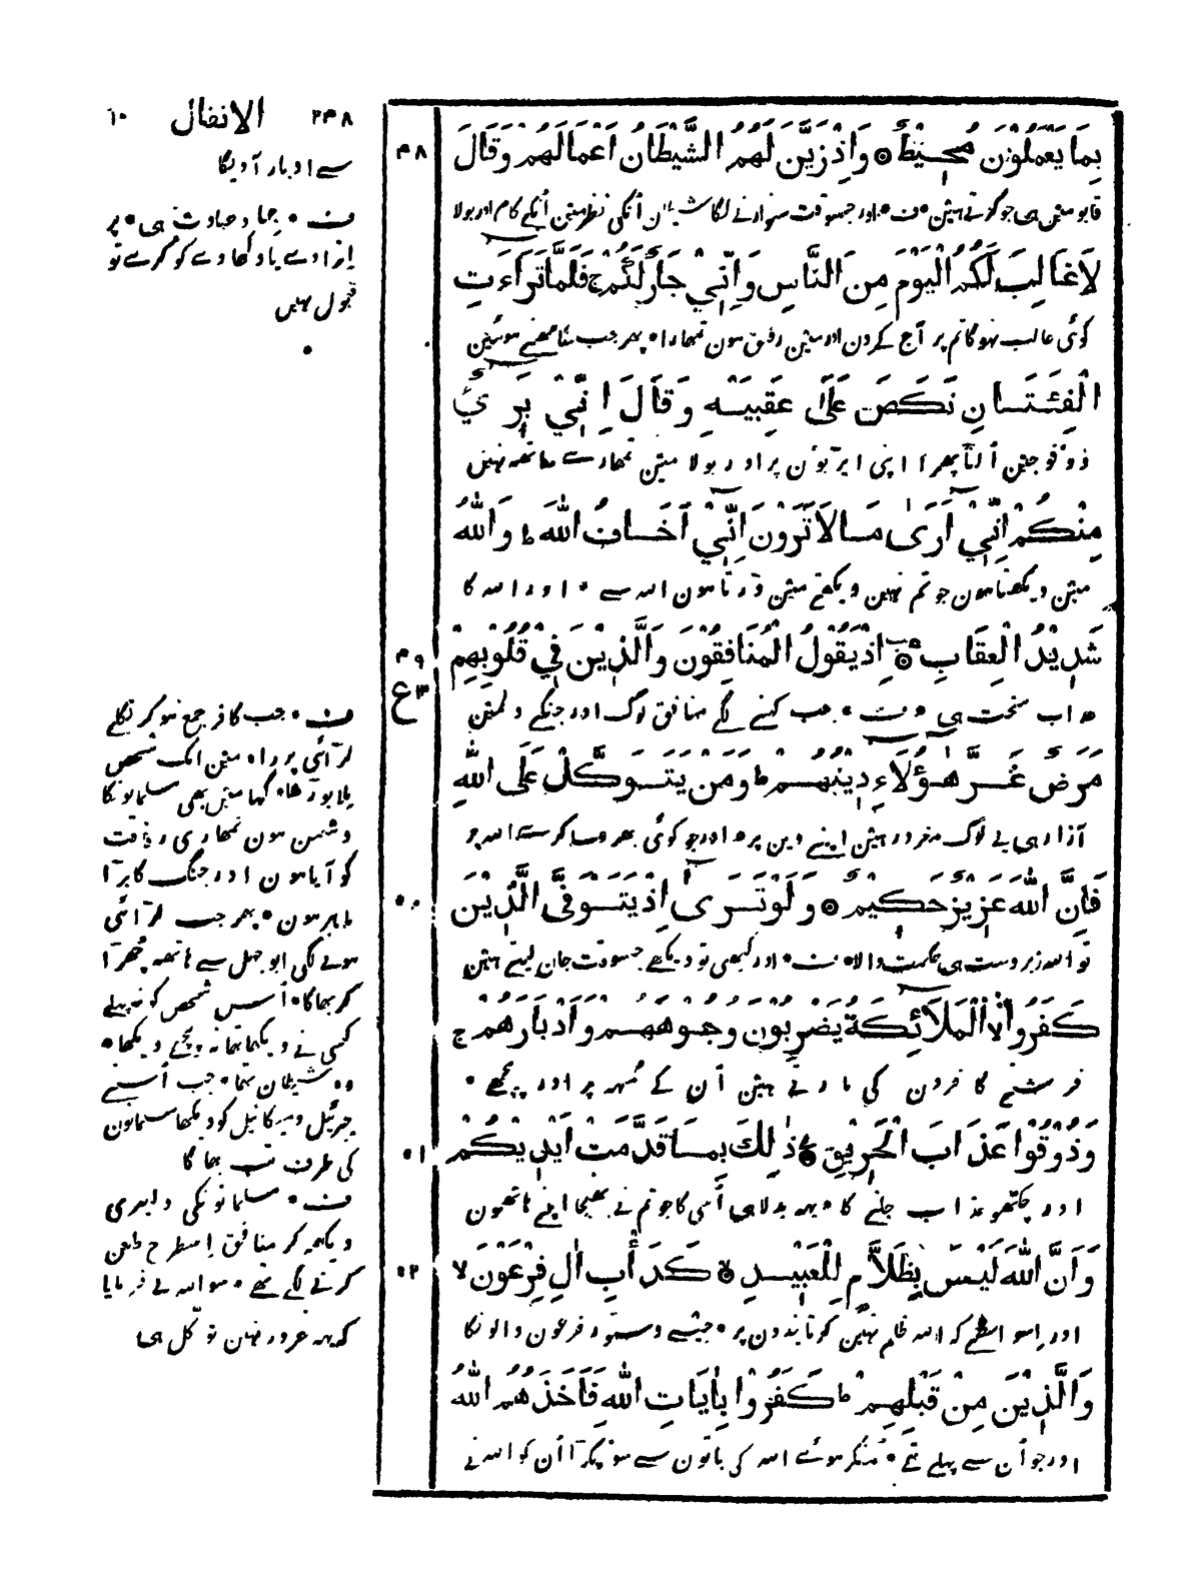 ۲۴۸ الانفال ۱۰
بِمَا يَعْمَلُوْنَ مُحِيْطٌ ۞ وَاِذْ زَيَّنَ لَهُمُ الشَّيْطَانُ اَعْمَالَهُمْ وَقَالَ
۴۸
قابو مین ہی جو کرتے ہین • ف • اور جسوقت سنوارنے لگا شیطان اُنکی نظر مین اُنکے کام اور بولا
لَا غَالِبَ لَكُمُ الْيَوْمَ مِنَ النَّاسِ وَاِنِّيْ جَارٌ لَّكُمْ ج فَلَمَّا تَرَاءَتِ
کوئی غالب نہوگا تم پر آج کے دن اور مین رفیق ہون تمھارا • پھر جب سامھنے ہوئین
الْفِئَتَانِ نَكَصَ عَلَى عَقِبَيْهِ وَقَالَ اِنِّيْ بَرِيْءٌ
دو فوجین اُلٹا پھرا اپنی ایڑیون پر اور بولا مین تمھارے ساتھہ نہین
مِنْكُمْ اِنِّيْ اَرَىٰ مَا لَا تَرَوْنَ اِنِّيْ اَخَافُ اللّٰهَ ط وَاللّٰهُ
مین دیکھتا ہون جو تم نہین دیکھتے مین ڈرتا ہون اللہ سے • اور اللہ کا
شَدِيْدُ الْعِقَابِ ۞ اِذْ يَقُوْلُ الْمُنَافِقُوْنَ وَالَّذِيْنَ فِيْ قُلُوْبِهِمْ
۴۹
ع ۳
عذاب سخت ہی • ف • جب کہنے لگے منافق لوگ اور جنکے دلمین
مَرَضٌ غَرَّ هٰؤُلَاءِ دِيْنُهُمْ ط وَمَنْ يَتَوَكَّلْ عَلَى اللّٰهِ
آزار ہی یے لوگ مغرور ہین اپنے دین پر • اور جو کوئی بھروسا کرے اللہ پر
فَاِنَّ اللّٰهَ عَزِيْزٌ حَكِيْمٌ ۞ وَلَوْ تَرٰى اِذْ يَتَوَفَّى الَّذِيْنَ
۵۰
تو اللہ زبردست ہی حکمت والا • ف • اور کبھی تو دیکھے جسوقت جان لیتے ہین
كَفَرُوا الْمَلَائِكَةُ يَضْرِبُوْنَ وُجُوْهَهُمْ وَاَدْبَارَهُمْ ج
فرشتے کافرون کی مارتے ہین اُن کے مُنہہ پر اور پیچھے •
وَذُوْقُوْا عَذَابَ الْحَرِيْقِ ۞ ذٰلِكَ بِمَا قَدَّمَتْ اَيْدِيْكُمْ
۵۱
اور چکھو عذاب جلنے کا • یہہ بدلا ہی اُسی کا جو تم نے بھیجا اپنے ہاتھون
وَاَنَّ اللّٰهَ لَيْسَ بِظَلَّامٍ لِّلْعَبِيْدِ ۞ كَدَأْبِ اٰلِ فِرْعَوْنَ لا
۵۲
اور اِسواسطے کہ اللہ ظلم نہین کرتا بندون پر • جیسے دستور فرعون والونکا
وَالَّذِيْنَ مِنْ قَبْلِهِمْ ط كَفَرُوْا بِاٰيَاتِ اللّٰهِ فَاَخَذَهُمُ اللّٰهُ
اور جو اُن سے پہلے تھے • منکر ہوئے اللہ کی باتون سے سو پکڑا اُن کو اللہ نے
سے ادبار آویگا
ف • جہاد عبادت ہی • پر
اِترا دے یا دکھاوے کو کرے تو
قبول نہین
ف • جب کافر جمع ہو کر نکلے
لڑائی پر راہ مین ایک شخص
بولا مین بھی مسلمانونکا
دشمن ہون تمھاری رفاقت
کو آیا ہون اور جنگ کا بڑا
ماہر ہون • پھر جب لڑائی
ہونے لگی ابوجہل سے ہاتھہ چھڑا
کر بھاگا • اُس شخص کو نہ پہلے
کسی نے دیکھا تھا نہ پیچھے دیکھا •
وہ شیطان تھا • جب اُسنے
جبرئیل و میکائیل کو دیکھا مسلمانون
کی طرف تب بھاگا
ف • مسلمانونکی دلیری
دیکھہ کر منافق اِسطرح طعن
کرنے لگے تھے • سو اللہ نے فرمایا
کہ یہہ غرور نہین توکل ہی